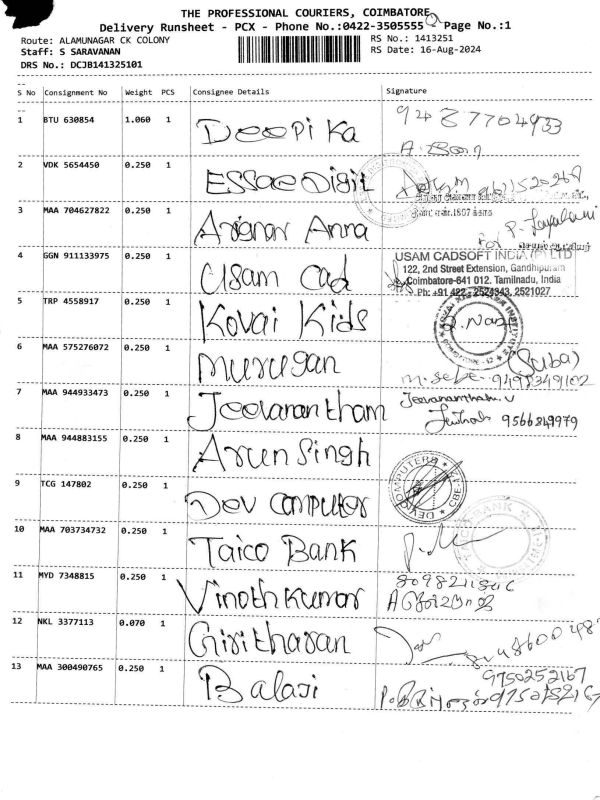 THE PROFESSIONAL COURIERS, COIMBATORE
Delivery Runsheet - PCX - Phone No.:0422-3505555 - Page No.:1
Route: ALAMUNAGAR CK COLONY
RS No.: 1413251
Staff: S SARAVANAN
RS Date: 16-Aug-2024
DRS No.: DCJB141325101
S No Consignment No Weight PCS Consignee Details Signature
1 BTU 630854 1.060 1 Deepika 9487704933
2 VDK 5654450 0.250 1 Essae Digit
3 MAA 704627822 0.250 1 Arignar Anna
For P. Jayalani
4 GGN 911133975 0.250 1 Usam Cad
USAM CADSOFT INDIA (P) LTD
122, 2nd Street Extension, Gandhipuram
Coimbatore-641 012. Tamilnadu, India
Ph: +91 422 - 2524343, 2521027
5 TRP 4558917 0.250 1 Kovai Kids
6 MAA 575276072 0.250 1 Murugan (Suba)
9498349102
7 MAA 944933473 0.250 1 Jeevanantham Jeevanantham.V
9566849979
8 MAA 944883155 0.250 1 Arun Singh
9 TCG 147802 0.250 1 Dev Computer DEV COMPUTERS CBE-12
10 MAA 703734732 0.250 1 Taico Bank
11 MYD 7348815 0.250 1 Vinoth Kumar
12 NKL 3377113 0.070 1 Giritharan
13 MAA 300490765 0.250 1 Balaji 9750252167